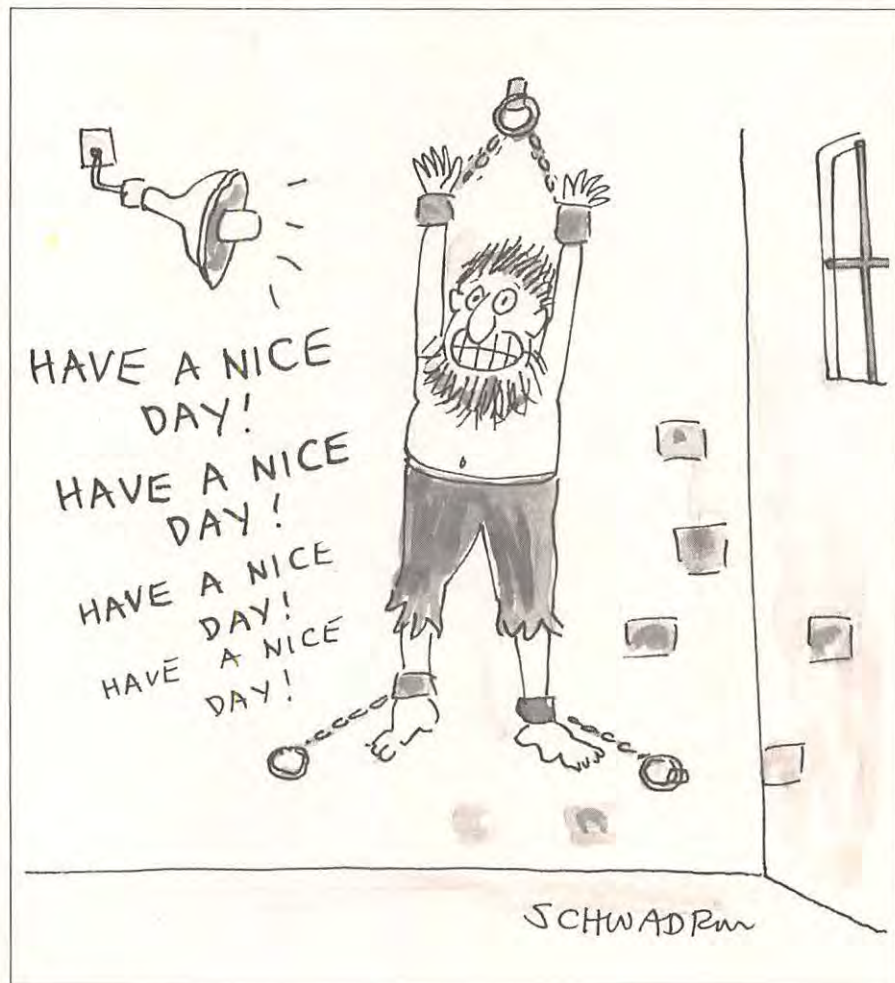 HAVE A NICE
DAY!
HAVE A NICE
DAY!
HAVE A NICE
DAY!
HAVE A NICE
DAY!
SCHWADRON